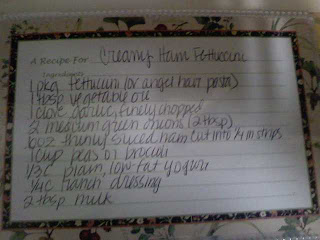 A Recipe For Creamy Ham Fettuccini
Ingredients
1 pkg fettucini (or angel hair pasta)
1 tbsp vegetable oil
1 clove garlic, finely chopped
2 medium green onions (2 tbsp)
6oz thinly sliced ham cut into 1/4 in strips
1 cup peas or brocoli
1/3 c plain, low-fat yogurt
1/4 c ranch dressing
2 tbsp milk